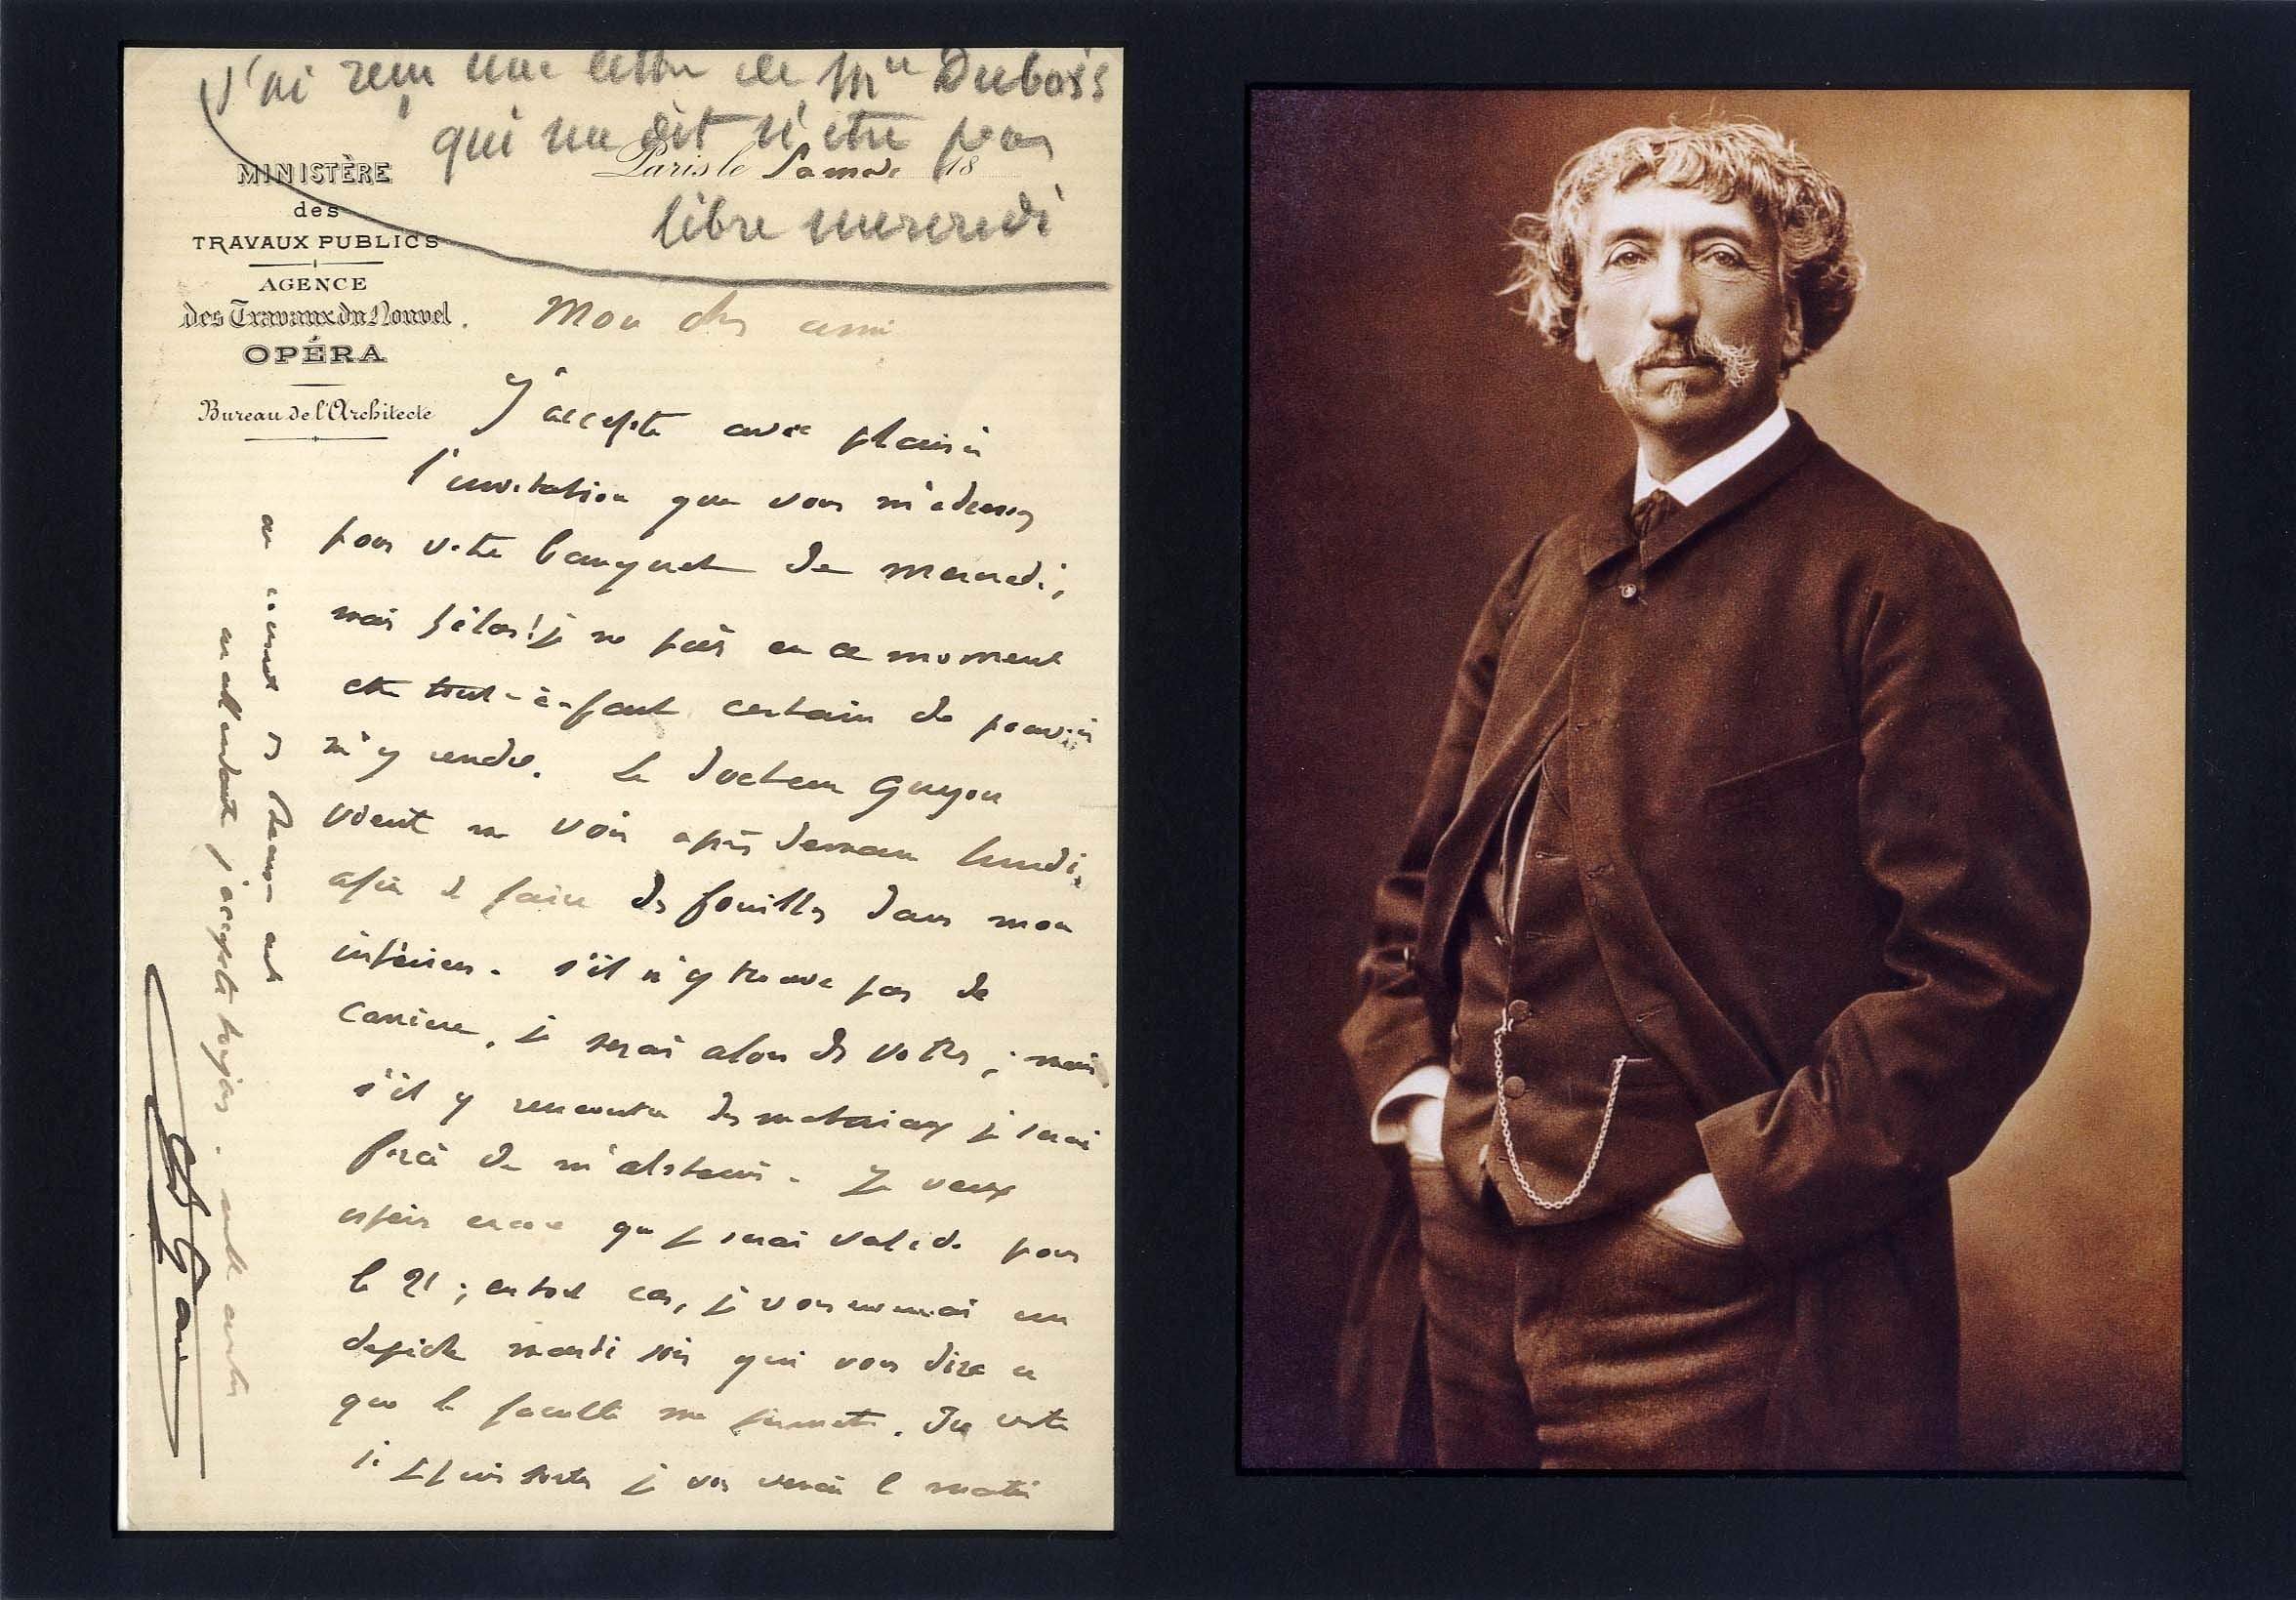 J'ai reçu une lettre de Mr Dubois
qui me dit n'être pas
libre mercredi
MINISTÈRE
des
TRAVAUX PUBLICS
AGENCE
des Travaux du Nouvel
OPÉRA
Bureau de l'Architecte
Paris le Samedi 18
Mon cher ami
J'accepte avec plaisir
l'invitation que vous m'adressez
pour votre banquet de mercredi,
mais hélas! je ne puis en ce moment
être tout-à-fait certain de pouvoir
m'y rendre. Le docteur Guyon
vient me voir après demain lundi,
afin de faire des fouilles dans mon
intérieur. s'il n'y trouve pas de
carrière, je serai alors des vôtres; mais
s'il y rencontre des matériaux je serai
forcé de m'abstenir. Je veux
espérer encore que je serai valide pour
le 21; en tout cas, je vous enverrai une
dépêche mardi soir qui vous dira ce
que la faculté me permettra. Du reste
si je puis sortir je vous verrai le matin
au
en attendant j'accepte toujours.
Ch Garnier